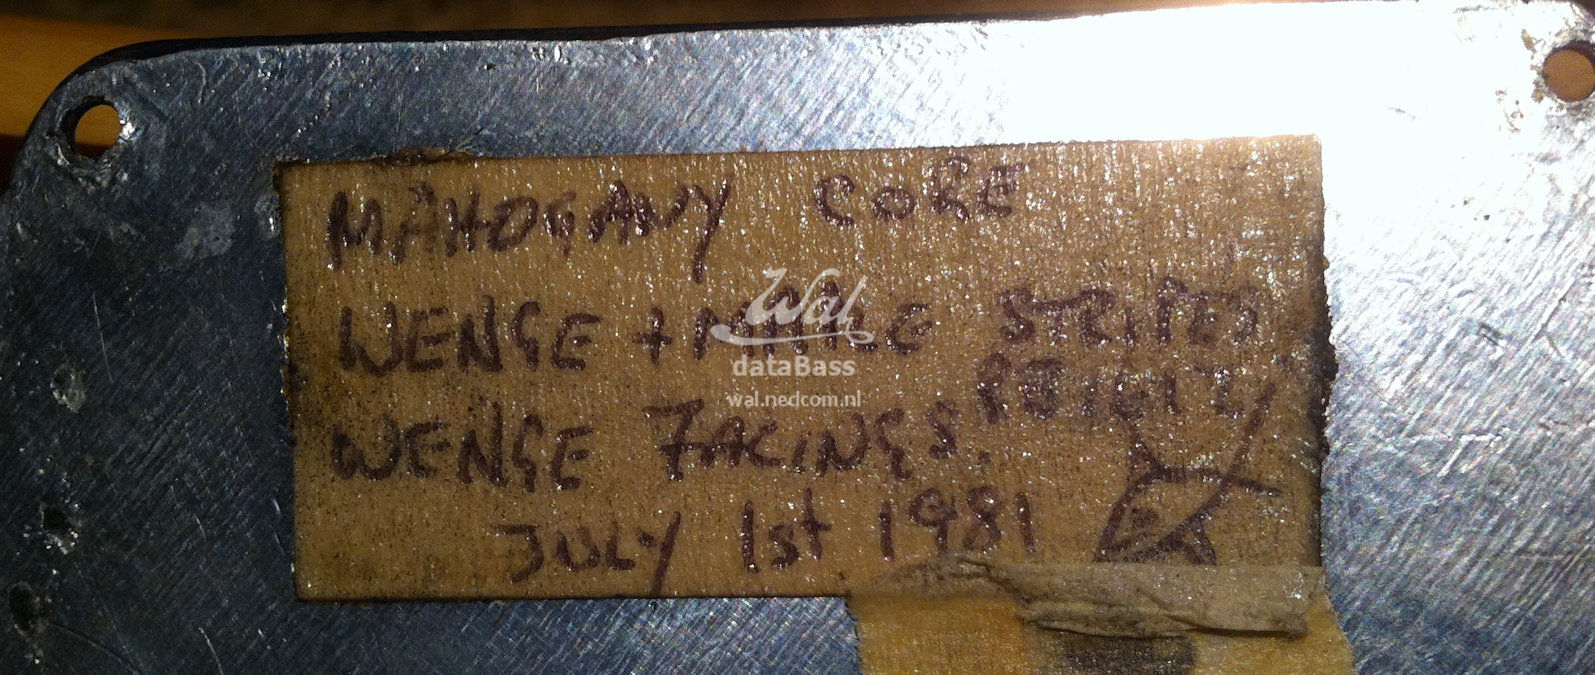 MAHOGANY CORE
WENGE + MAPLE STRIPES
WENGE FACINGS.
JULY 1st 1981
Wal
dataBass
wal.nedcom.nl